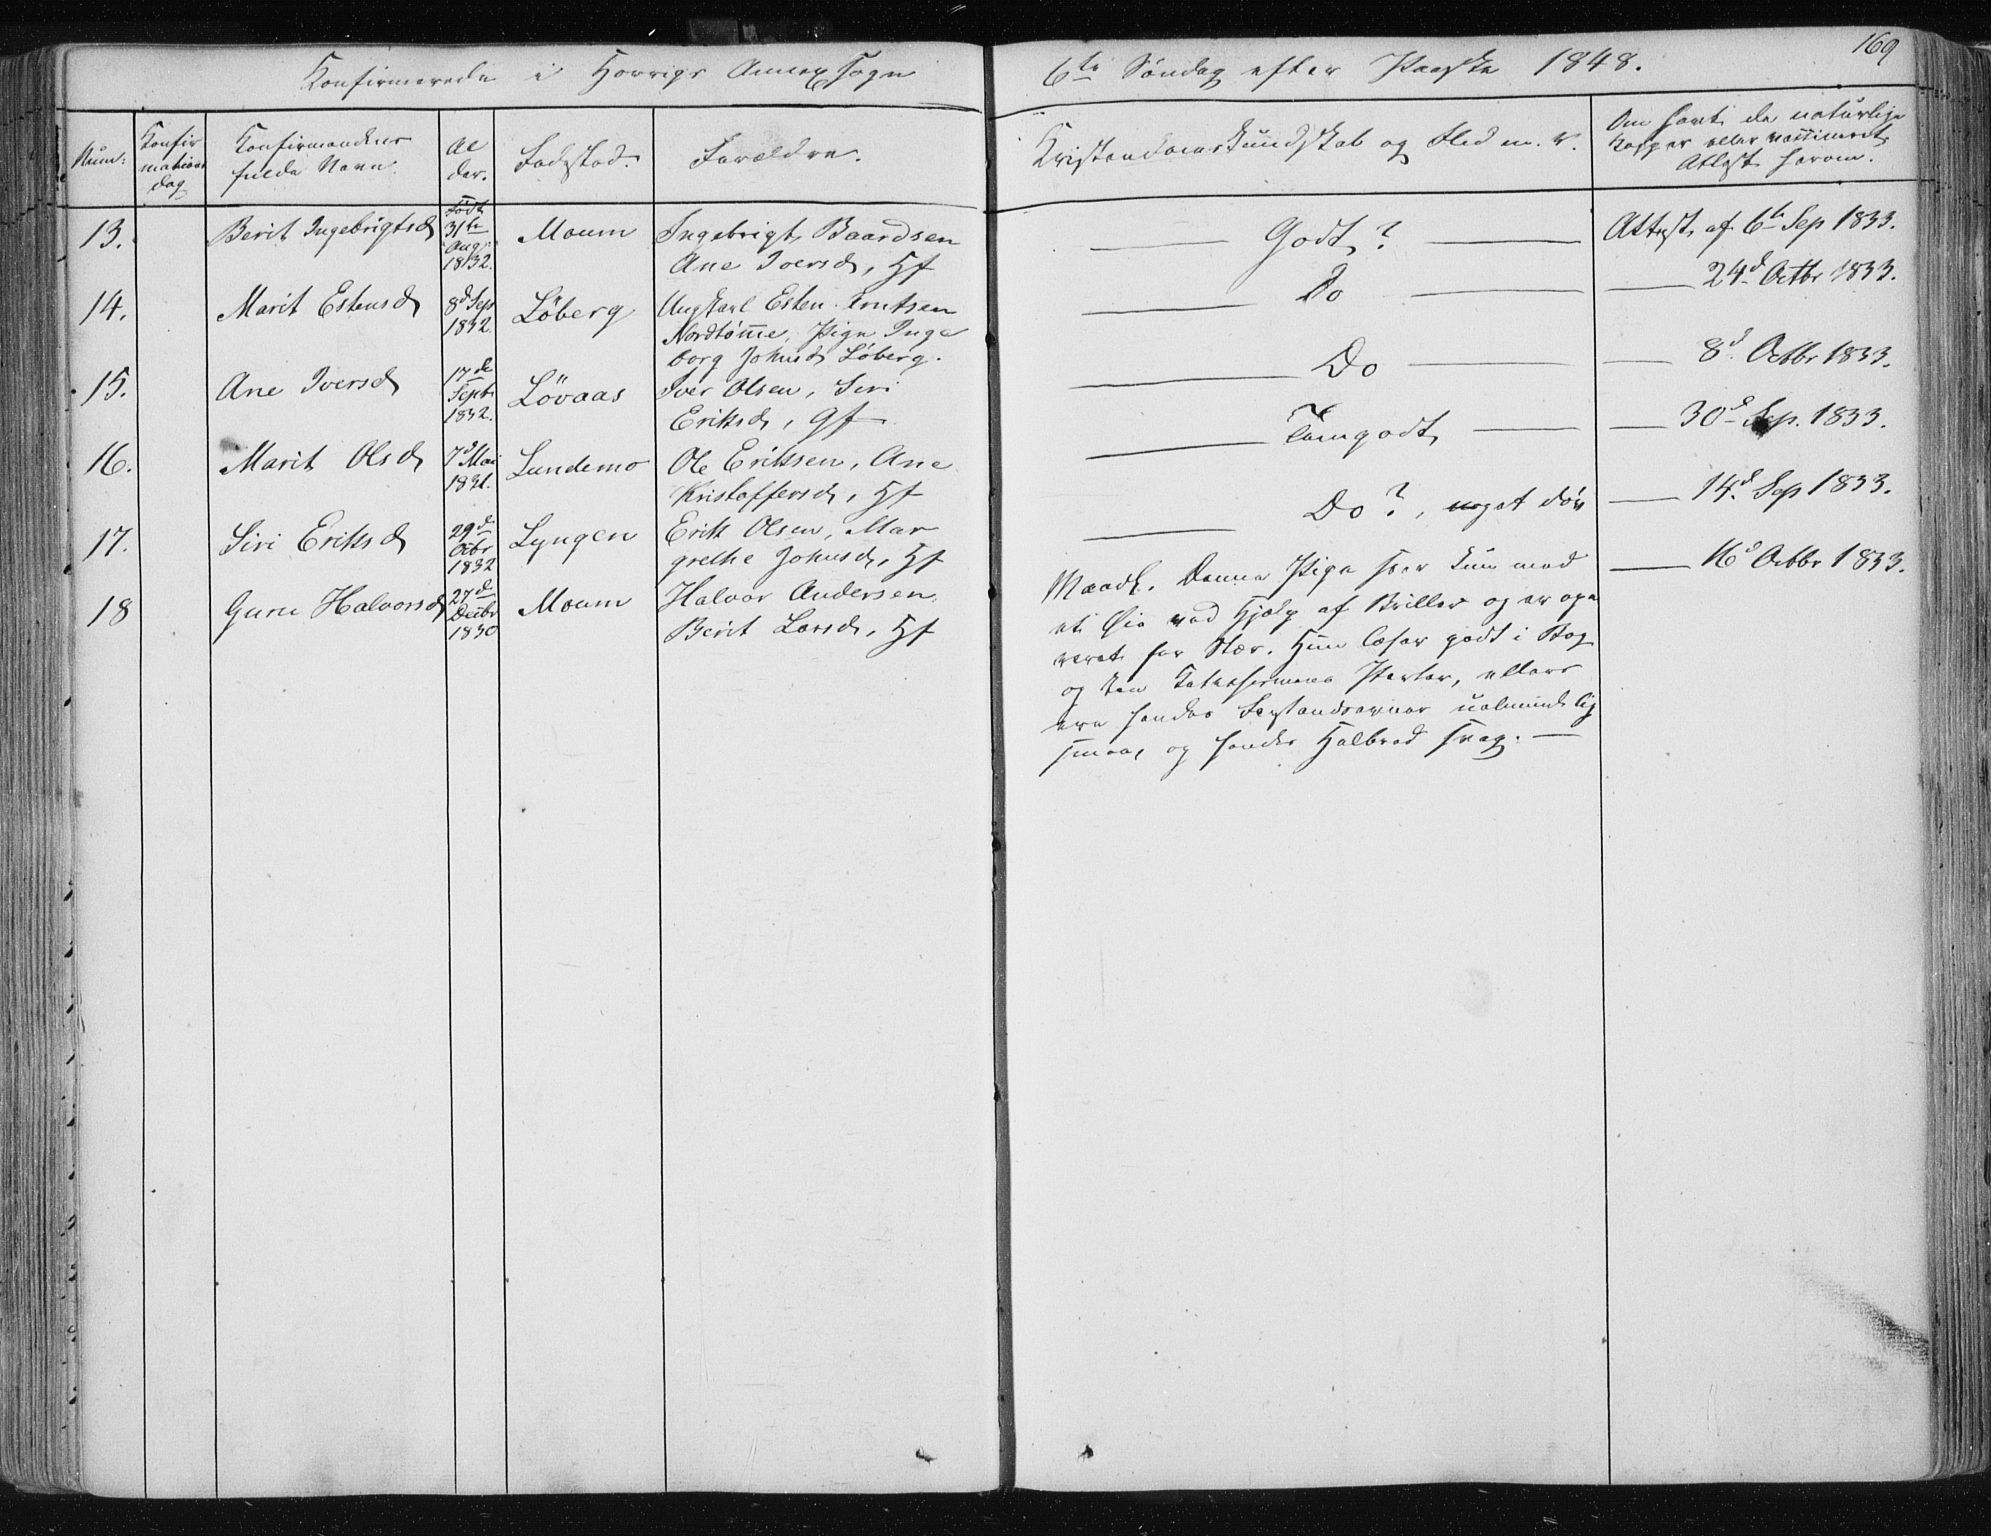 Konfirmerede i Horrigs Annex Sogn
6te Søndag efter Paaske 1848.
169
Num:
Konfir
mations
dag
Konfirmandens
fulde Navn.
Al
der.
Fødested.
Forældre.
Kristendomskundskab og Flid m. v.
Om havt de naturlige
Kopper eller vaccineret
Attest herom.
13.
Berit Ingebrigtsd
Født
31te
Aug:
1832.
Moum
Ingebrigt Baardsen
Ane Iversd, Hf
Godt?
Attest af 6te Sep 1833.
14.
Marit Estensd
8d Sep
1832
Løberg
Ungkarl Esten Knutsen
Nordtømme, Pige Inge
borg Johnsd Løberg.
Do
24d Octbr 1833.
15.
Ane Iversd
17de
Septr
1832.
Løvaas
Iver Olsen, Siri
Eriksd, Gf
Do
8d Octbr 1833.
16.
Marit Olsd
7d Mai
1831.
Lundemo
Ole Eriksen, Ane
Kristoffersd, Hf
Temgodt
30d Sep. 1833.
17.
Siri Eriksd
29de
Octbr
1832
Lyngen
Erik Olsen, Mar
grethe Johnsd, Hf
Do?, noget døv
14d Sep 1833.
18
Guru Halvorsd
27de
Decbr
1830
Moum
Halvor Andersen
Berit Larsd, Hf
Maadl. Denne Pige seer kun med
et Øie ved Hjælp af Briller og er ope
reret for Stær. Hun læser godt i Bog
og kan Katekismens Parter, ellers
ere hendes Forstandsevner ualmindelig
smaa, og hendes Helbred svag.
16d Octbr 1833.